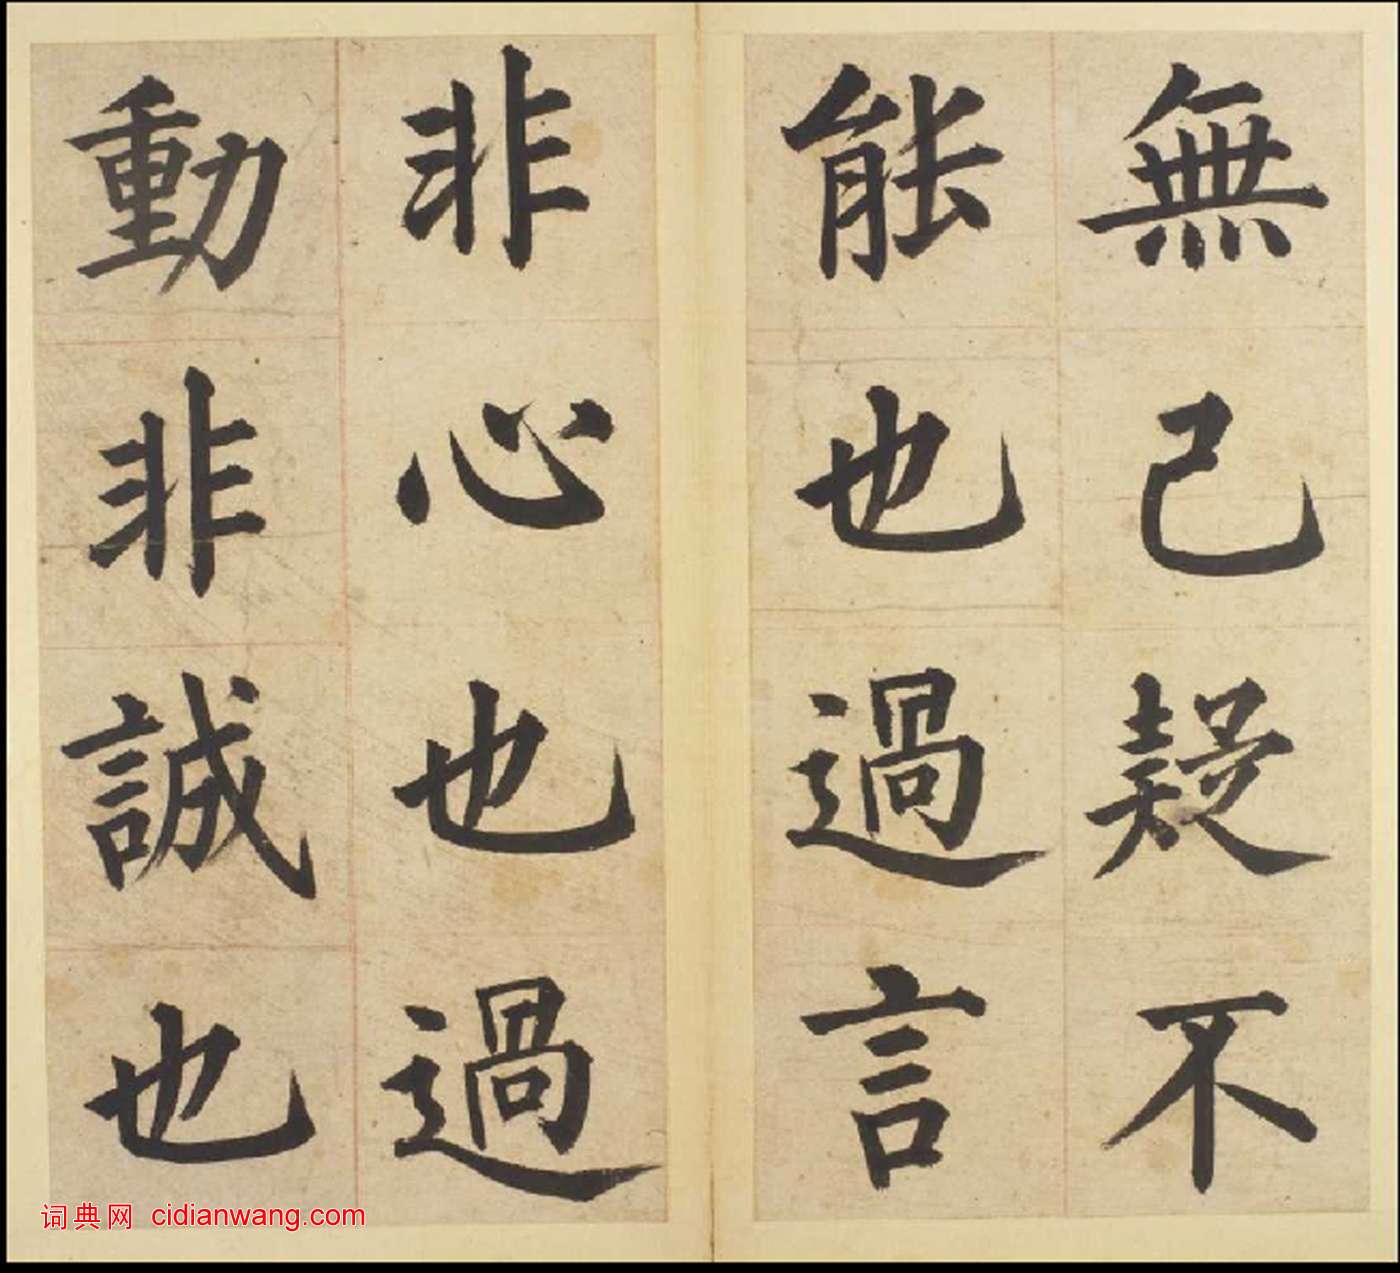 無己疑不
能也過言
非心也過
動非誠也
词典网 cidianwang.com